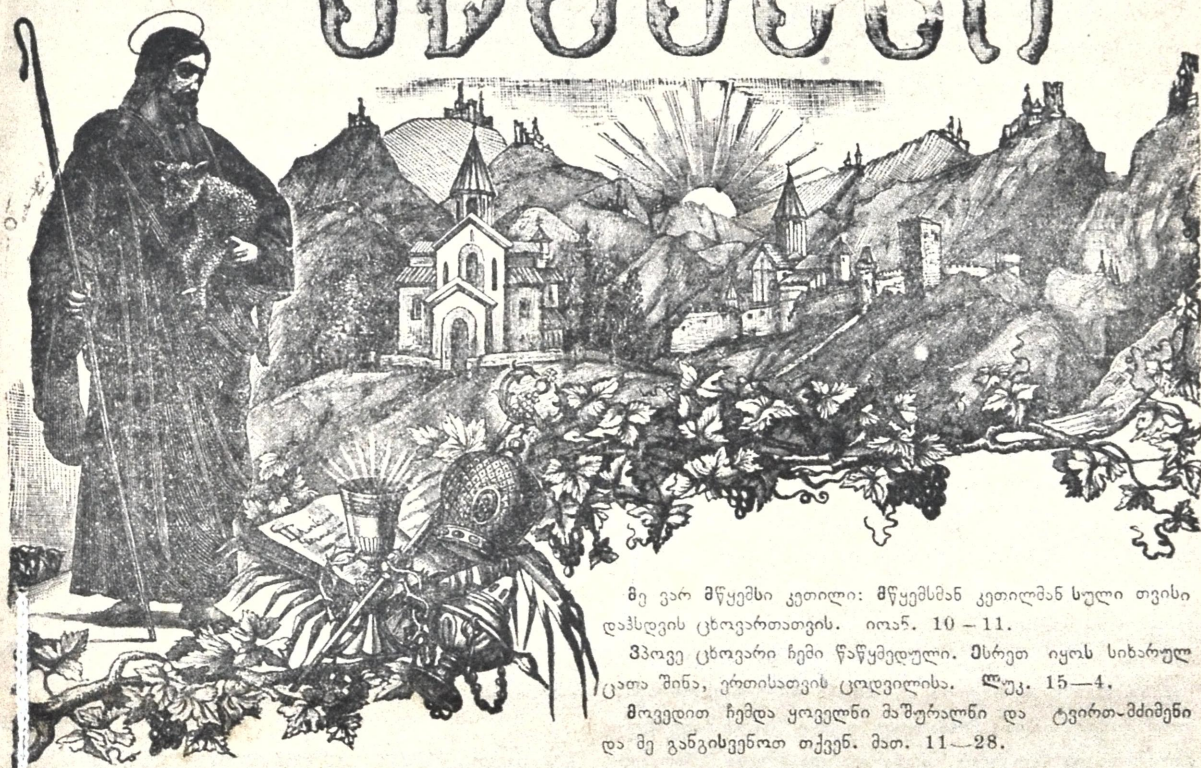 მე ვარ მწყემსი კეთილი: მწყემსმან კეთილმან სული თვისი
დაჰსდვის ცხოვართათვის. იოან. 10 – 11.
ვპოვე ცხოვარი ჩემი წაწყმედული. ესრეთ იყოს სიხარულ
ცათა შინა, ერთისათვის ცოდვილისა. ლუკ. 15—4.
მოვედით ჩემდა ყოველნი მაშურალნი და ტვირთ-მძიმენი
და მე განგისვენოთ თქვენ. მათ. 11—28.